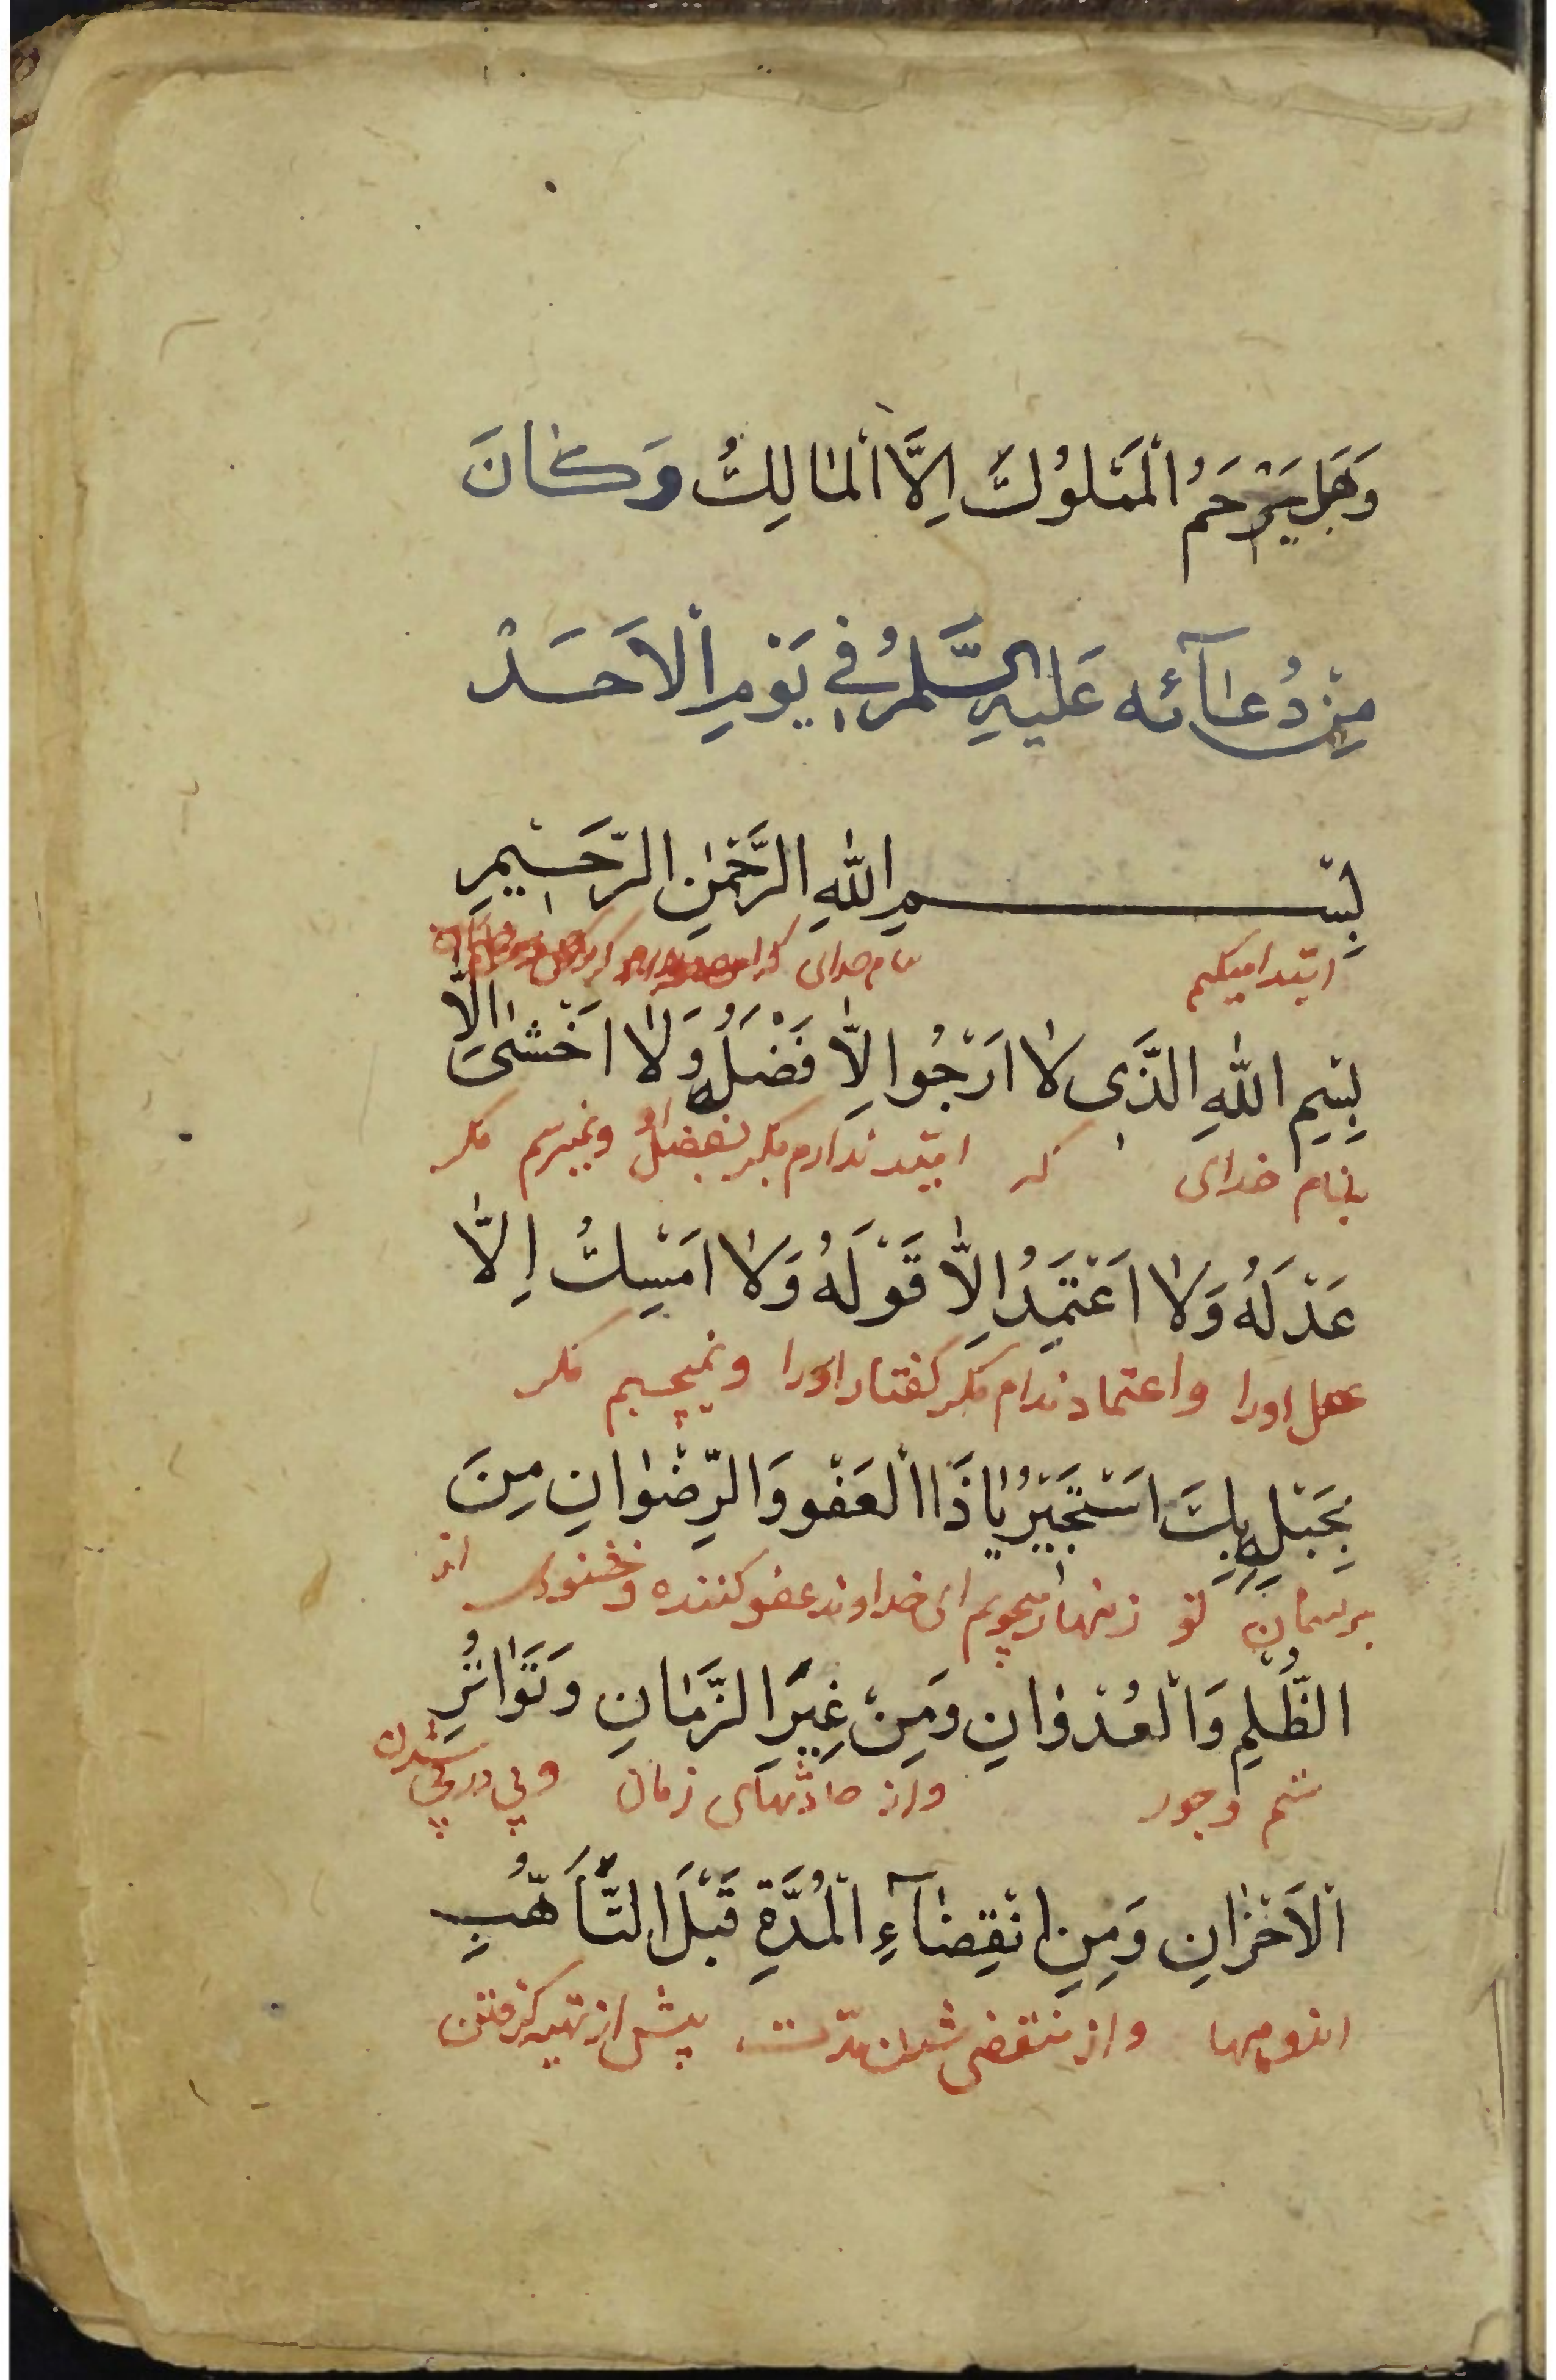 وَهَلْ يَرْحَمُ الْمَمْلُوكَ اِلَّا الْمَالِكُ وَكَانَ
مِنْ دُعَآئِه عَلَيْهِ السَّلَمُ فِي يَوْمِ الْاَحَدْ
بِسْمِ اللهِ الرَّحْمٰنِ الرَّحِيمِ
ابتدا میکنم بنام خدای که
بِسْمِ اللهِ الَّذِى لَا اَرْجُوا اِلَّا فَضْلَهُ وَلَا اَخْشَىٰ اِلَّا
بنام خدای که امید ندارم مکر بفضل او ونمیترسم مکر
عَدْلَهُ وَلَا اَعْتَمِدُ اِلَّا قَوْلَهُ وَلَا اَمْسِكُ اِلَّا
عدل اورا واعتماد ندارم مکر کفتار اورا ونمیچسبم مکر
بِحَبْلِهِ بِكَ اَسْتَجِيْرُ يَا ذَا الْعَفْوِ وَالرِّضْوَانِ مِنَ
بریسمان تو زنهار میجویم ای خداوند عفو کننده وخشنودی از
الظُّلْمِ وَالْعُدْوَانِ وَمِنْ غِيَرِ الزَّمَانِ وَتَوَاتُرِ
ستم وجور واز حادثهای زمان وپی درپی شدن
الْاَحْزَانِ وَمِنِ انْقِضَآءِ الْمُدَّةِ قَبْلَ التَّاَهُّبِ
اندوهها واز منقضی شدن مدّت پیش از تهیه کرفتن